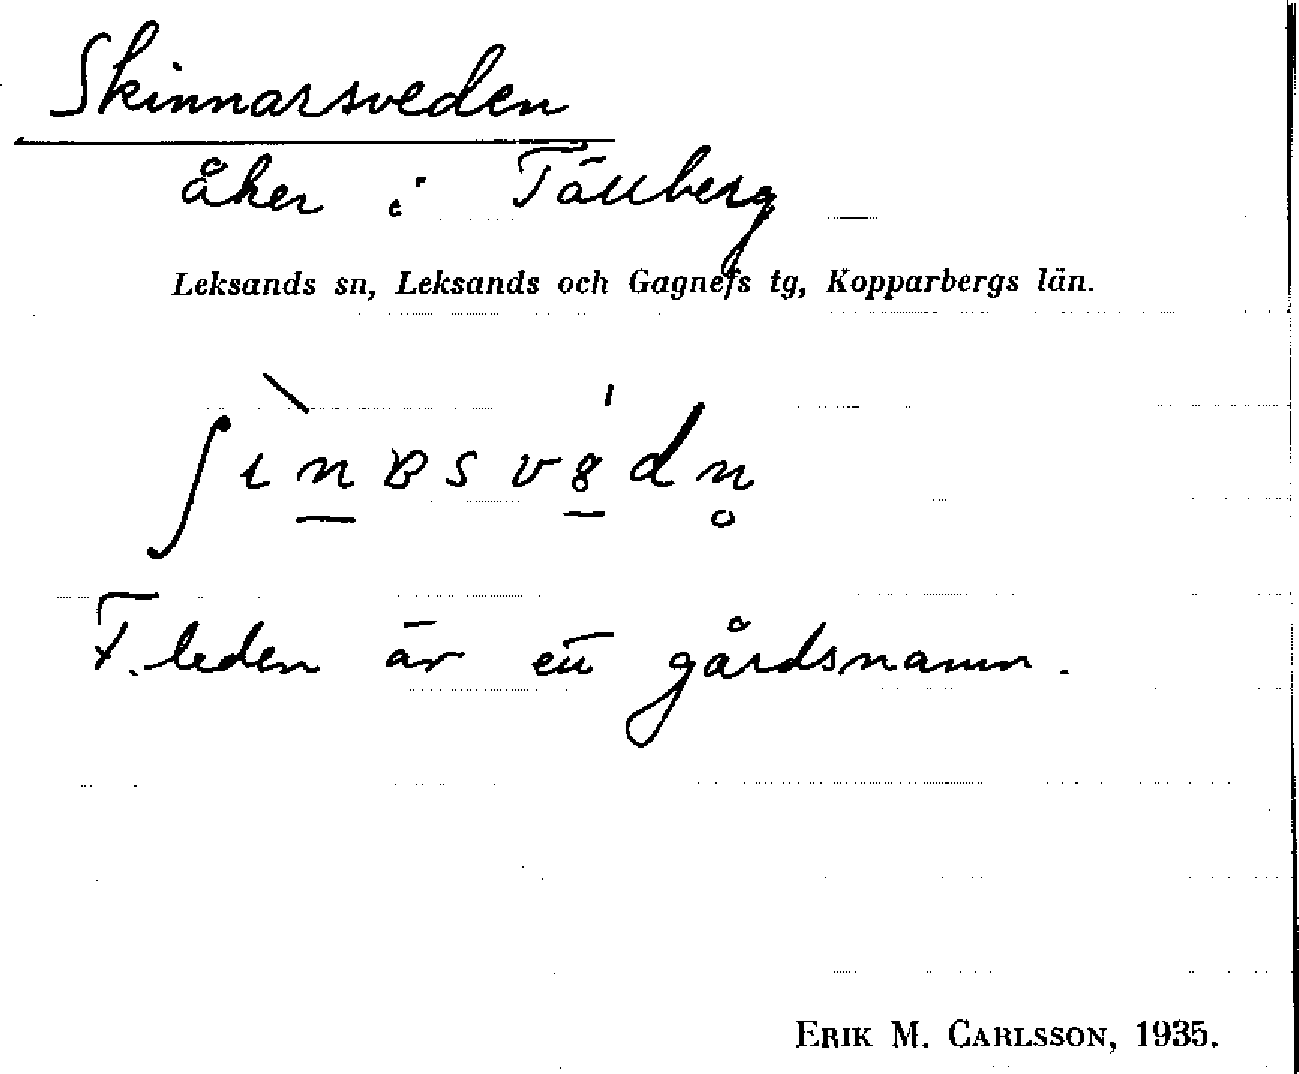 Skinnarsveden
åker i Tällberg
Leksands sn, Leksands och Gagnefs tg, Kopparbergs län.
F. leden är ett gårdsnamn.
ERIK M. CARLSSON, 1935.